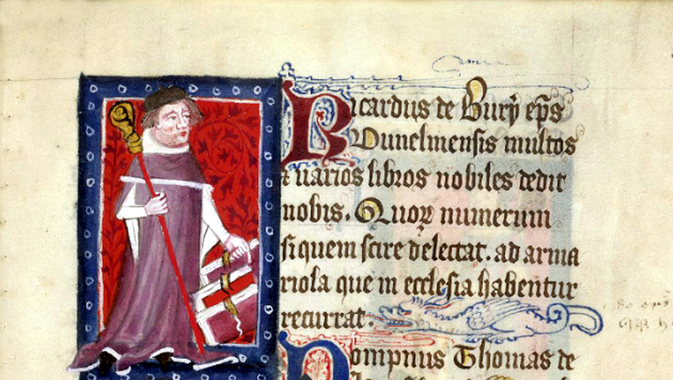 Ricardus de Bury eps
Dunelmensis multos
& uarios libros nobiles dedit
nobis. Quoꝝ numerum
si quem scire delectat. ad arma
riola que in ecclesia habentur
recurrat.
Dompnus Thomas de